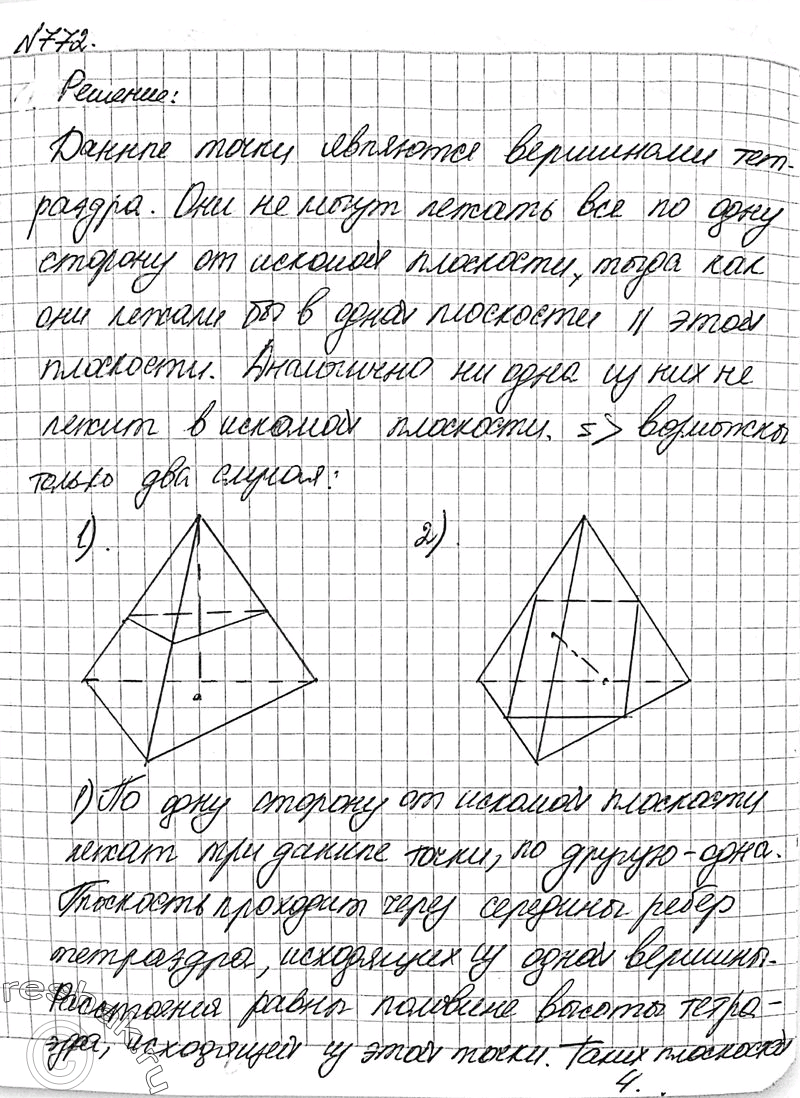 №772.
Решение:
Данные точки являются вершинами тет-
раэдра. Они не могут лежать все по одну
сторону от искомой плоскости, тогда как
они лежали бы в одной плоскости || этой
плоскости. Аналогично ни одна из них не
лежит в искомой плоскости. => возможны
только два случая:
1). 2).
1) По одну сторону от искомой плоскости
лежат три данные точки, по другую - одна.
Плоскость проходит через середины ребер
тетраэдра, исходящих из одной вершины.
Расстояния равны половине высоты тетра-
эдра, исходящей из этой точки. Таких плоскостей
4.
reshak.ru